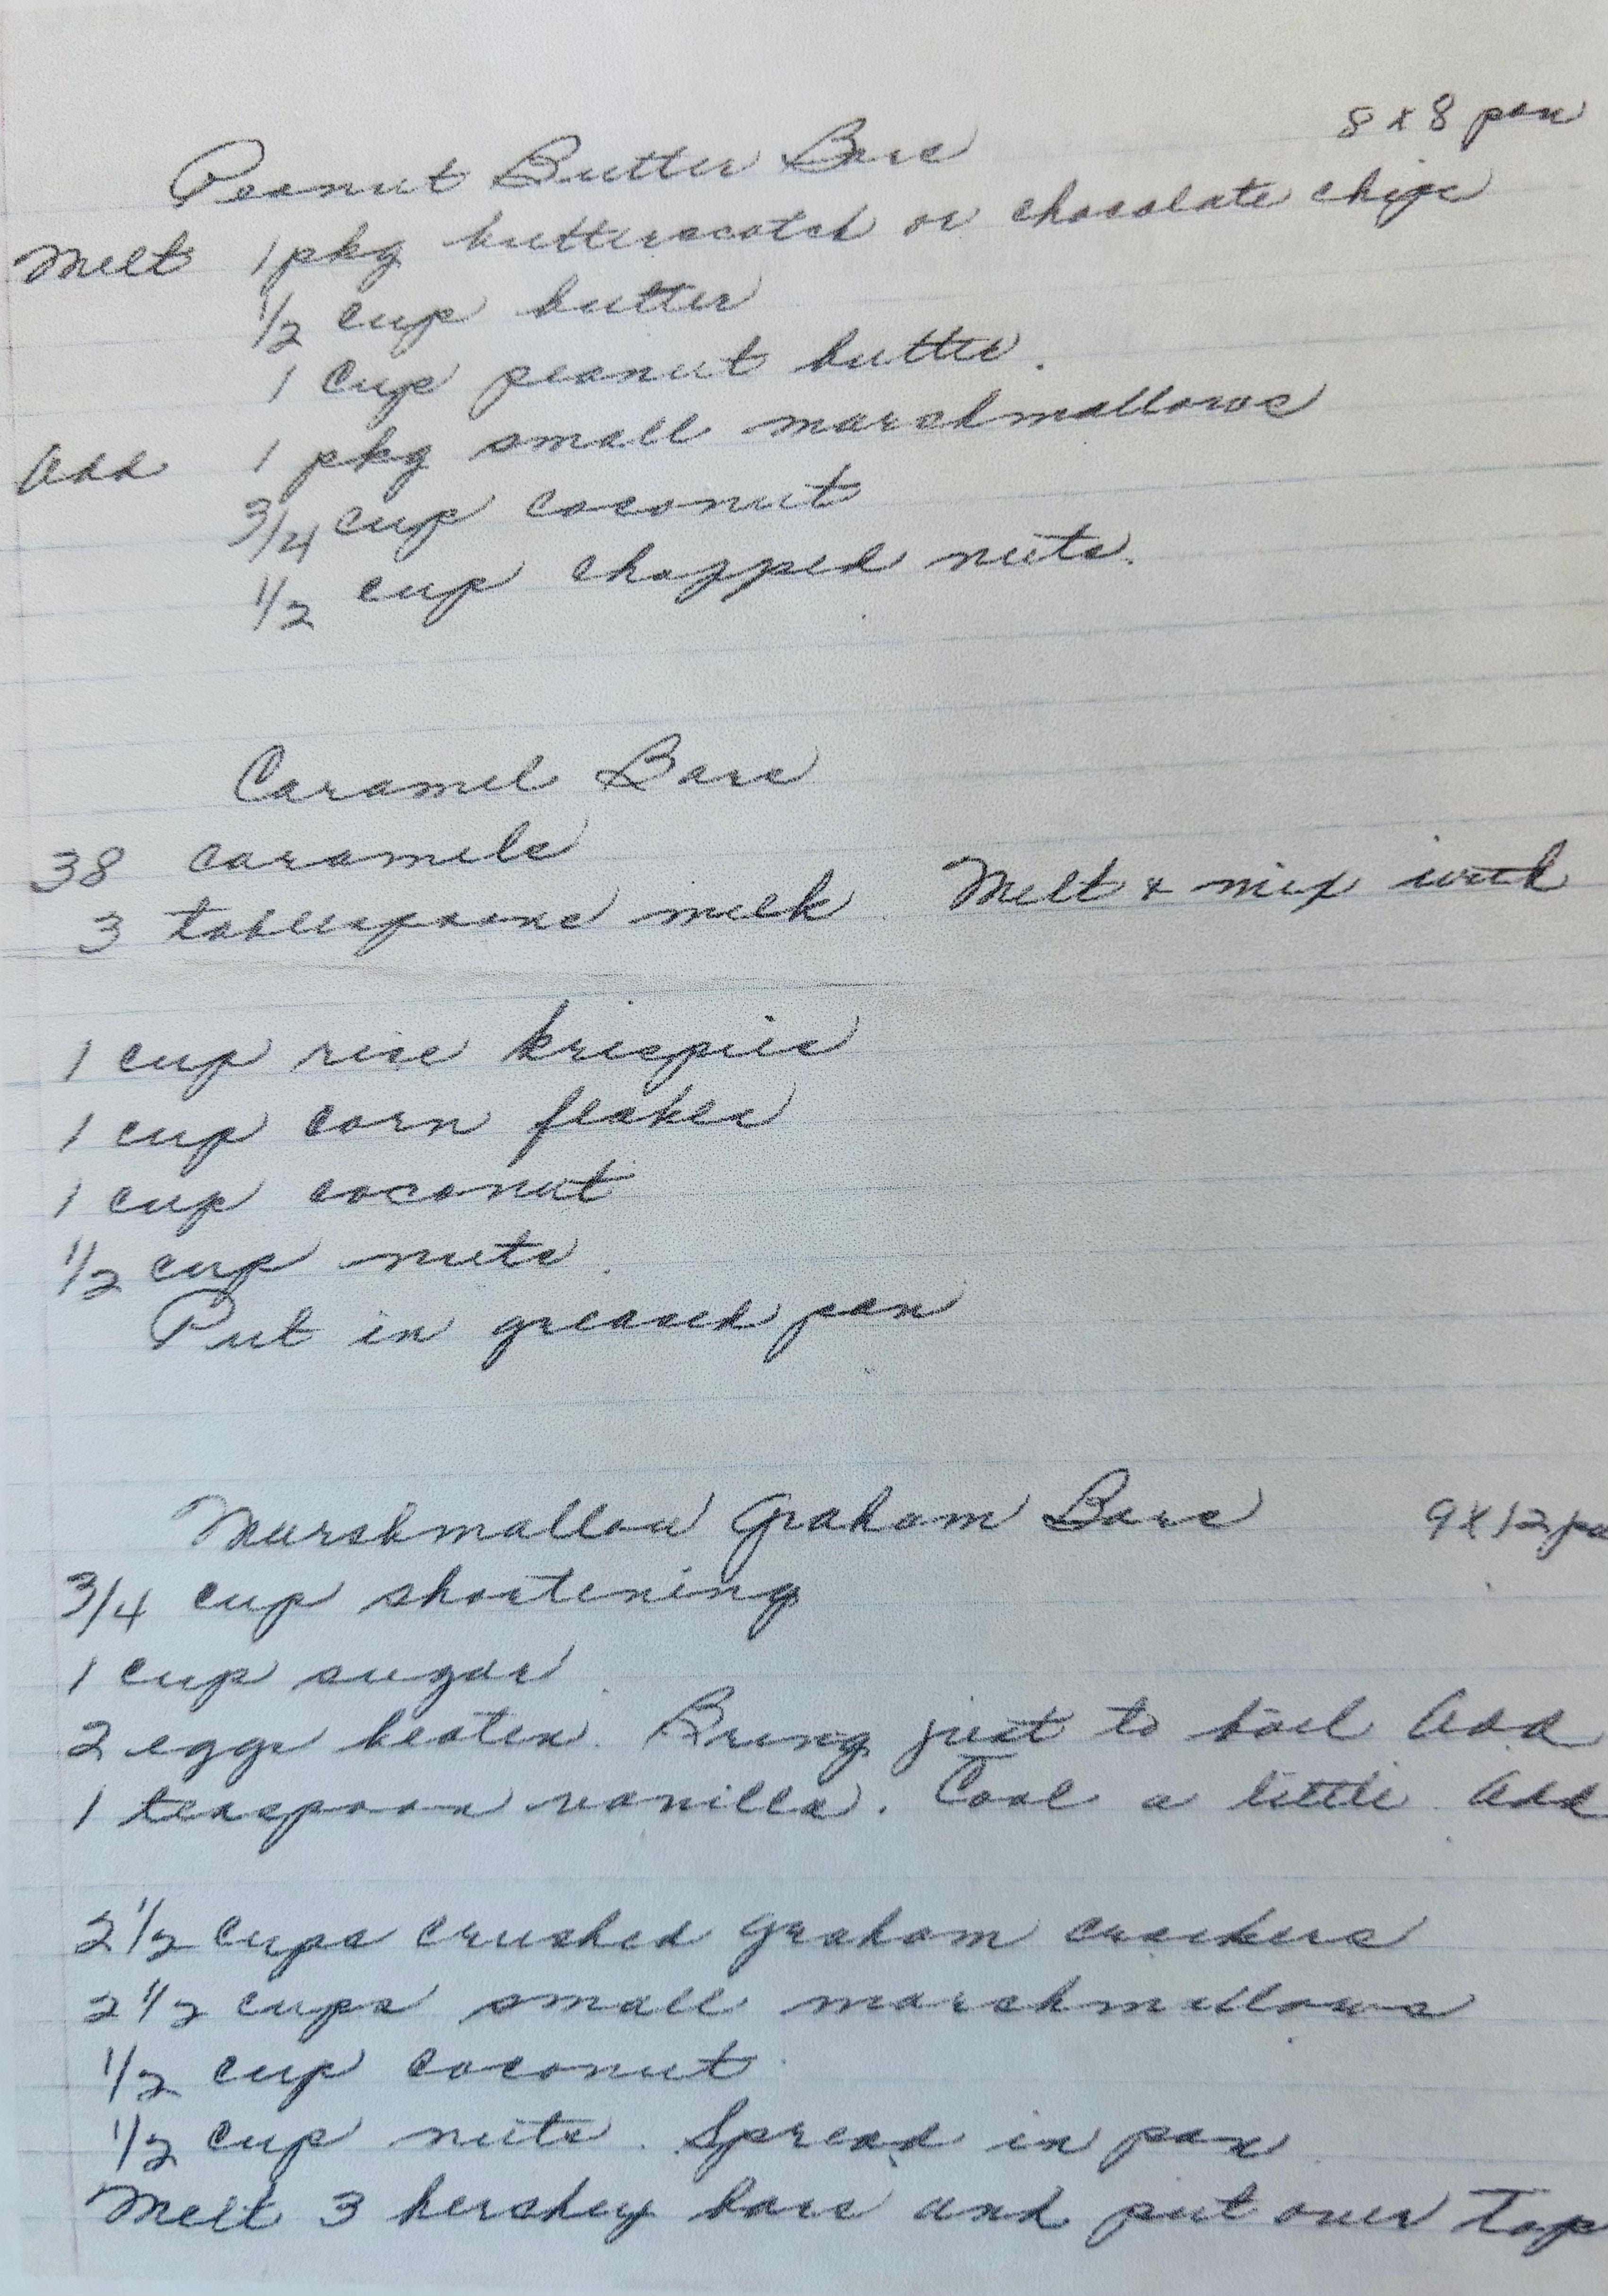 8 x 8 pan
Peanut Butter Bars
Melt 1 pkg butterscotch or chocolate chips
1/2 cup butter
1 cup peanut butter.
Add 1 pkg small marshmallows
3/4 cup coconut
1/2 cup chopped nuts.
Caramel Bars
38 caramels
3 tablespoons milk. Melt & mix with
1 cup rice krispies
1 cup corn flakes
1 cup coconut
1/2 cup nuts.
Put in greased pan
Marshmallow Graham Bars 9x12 pa
3/4 cup shortening
1 cup sugar.
2 eggs beaten. Bring just to boil Add
1 teaspoon vanilla. Cool a little. Add
2 1/2 cups crushed graham crackers
2 1/2 cups small marshmallows
1/2 cup coconut
1/2 cup nuts. Spread in pan
Melt 3 hershey bars and put over top